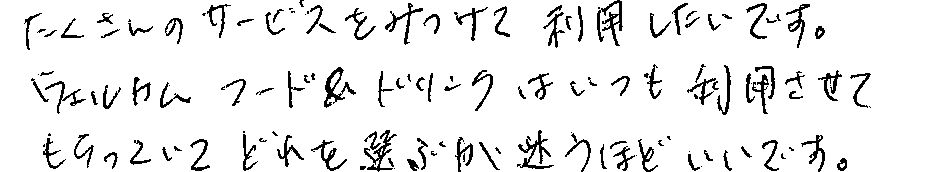 たくさんのサービスをみつけて利用したいです。
ウェルカムフード&ドリンクはいつも利用させて
もらっていてどれを選ぶか迷うほどいいです。